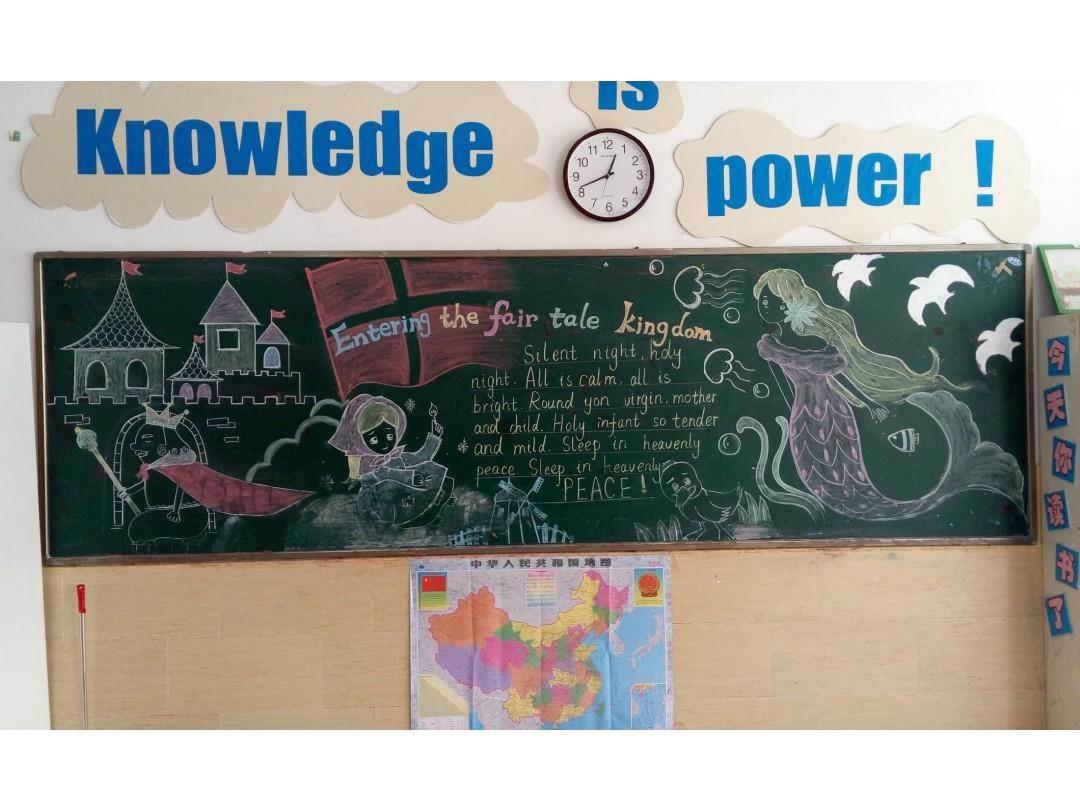 Knowledge
is
power !
11 12 1
10 2
9 3
8 4
7 6 5
Entering the fair tale kingdom
Silent night, holy
night. All is calm, all is
bright. Round yon virgin, mother
and child. Holy infant so tender
and mild. Sleep in heavenly
peace. Sleep in heavenly
PEACE!
中华人民共和国地图
今
天
你
读
书
了